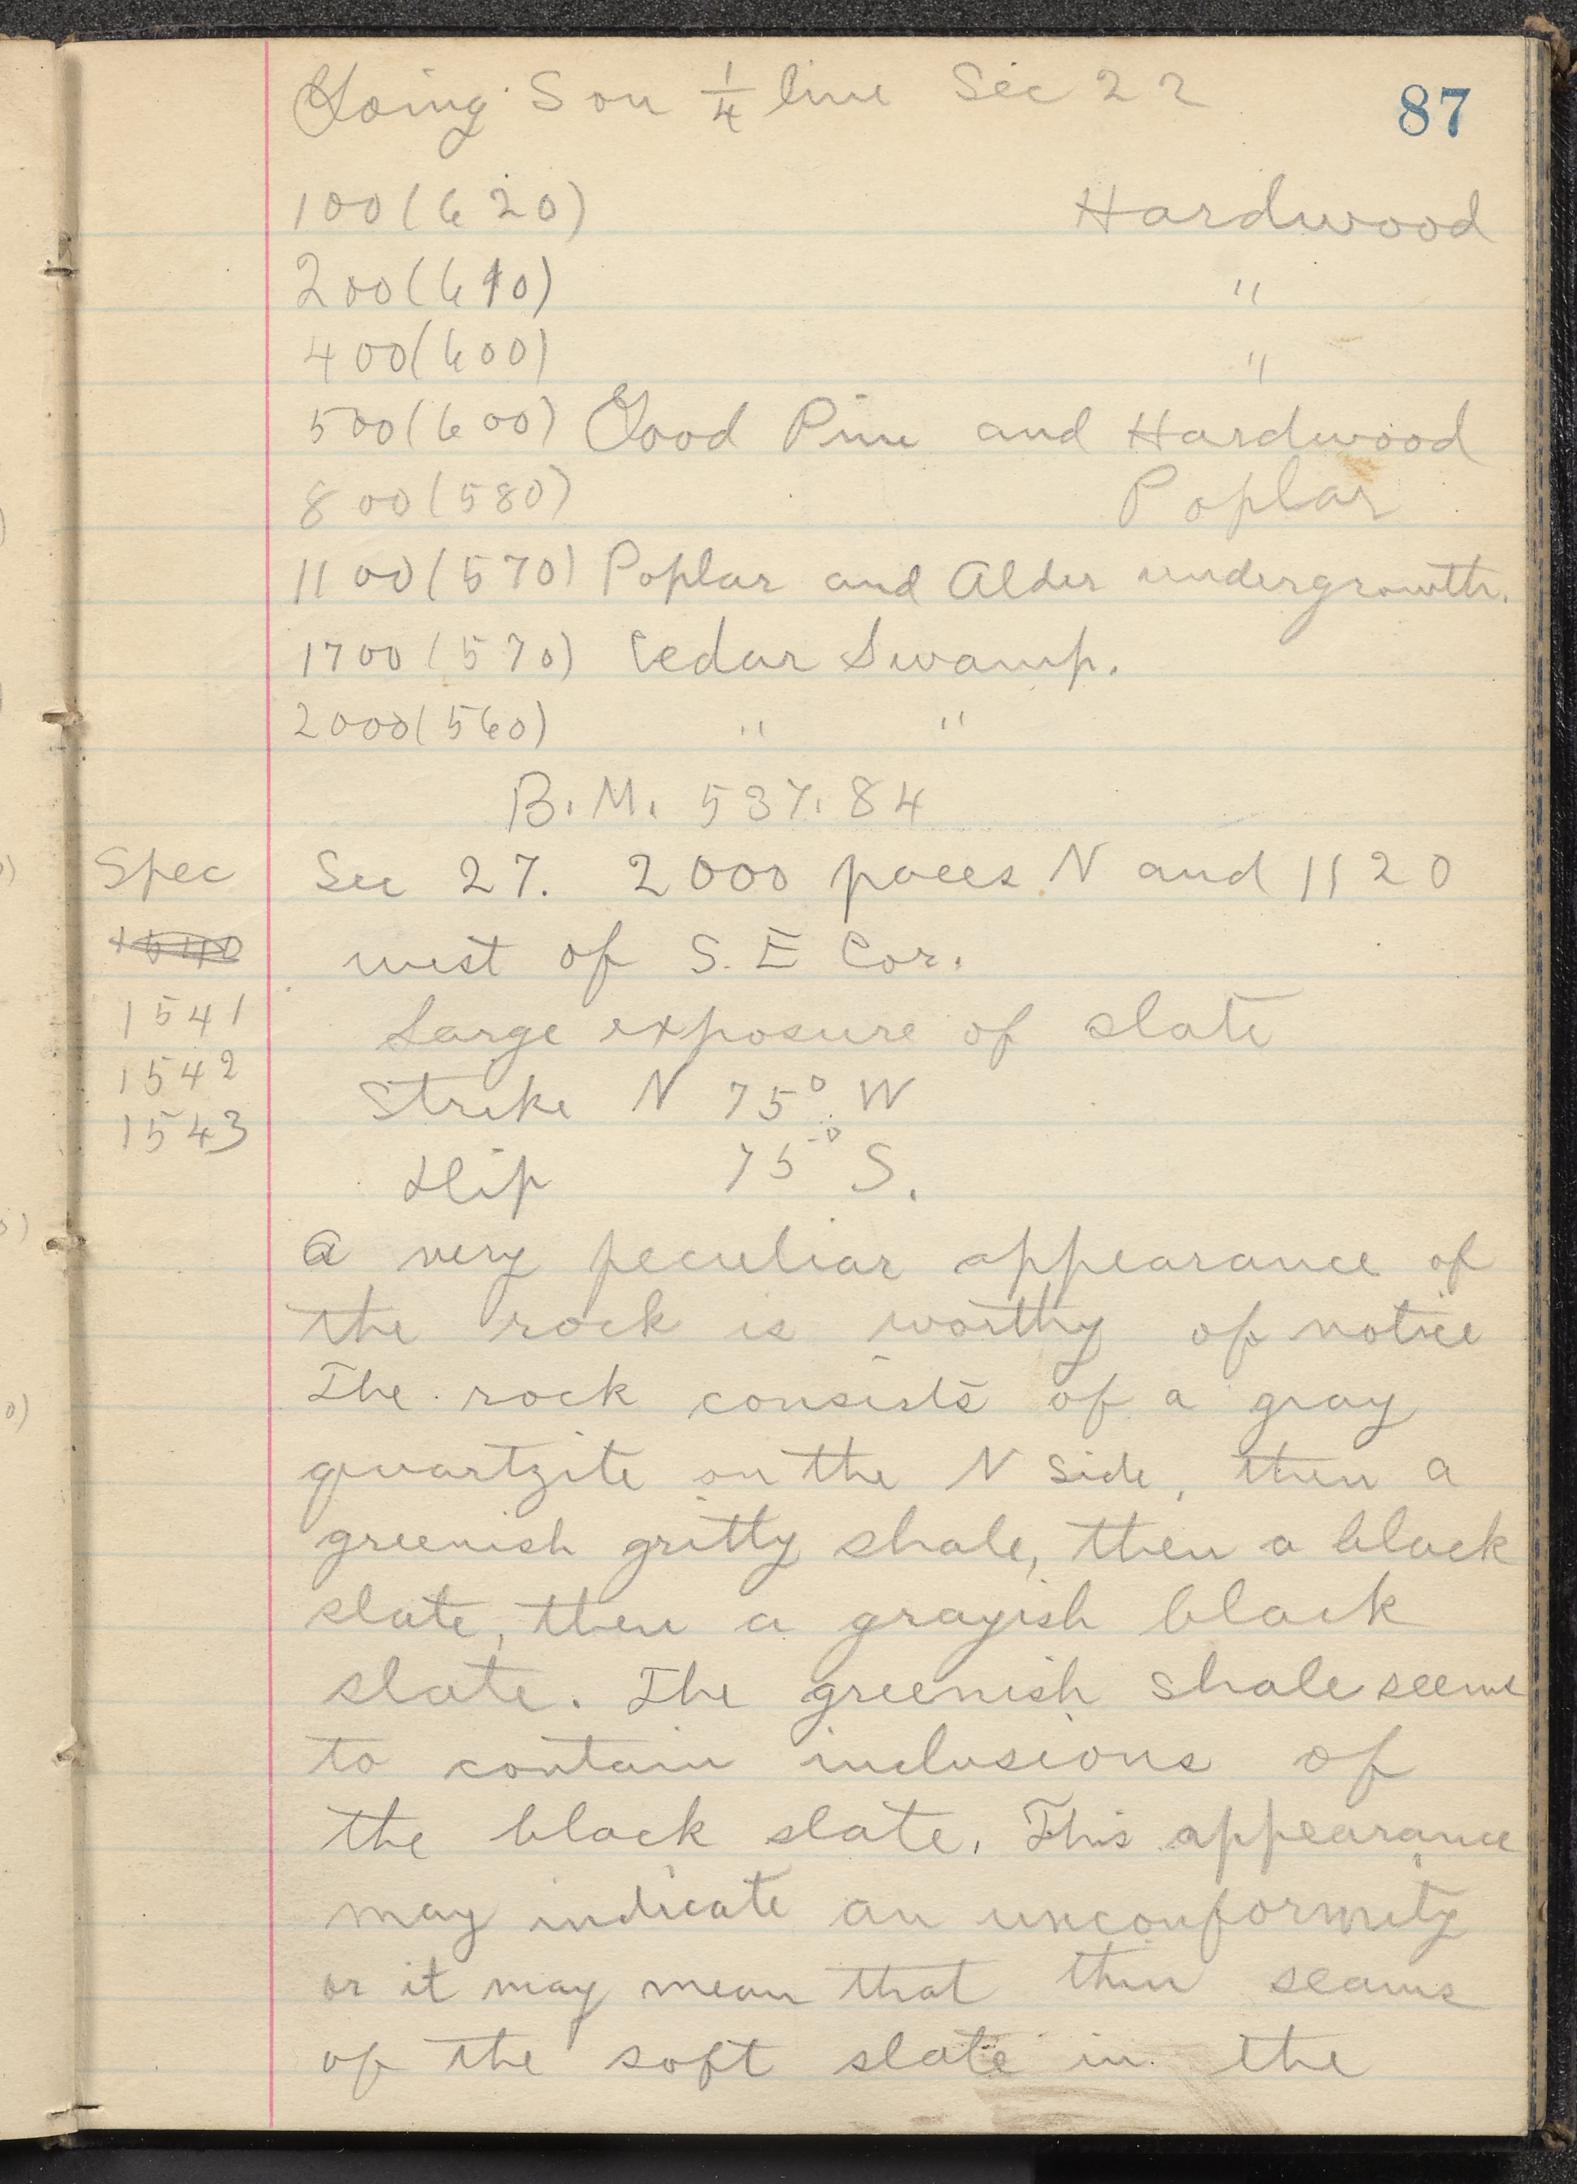 87
Going S on 1/4 line Sec 22
100 (620) Hardwood
200 (610) "
400 (600) "
500 (600) Good Pine and Hardwood
800 (580) Poplar
1100 (570) Poplar and Alder undergrowth.
1700 (570) Cedar Swamp.
2000 (560) " "
B.M. 537.84
Spec Sec 27. 2000 paces N and 1120
1540 west of S.E Cor.
1541 Large exposure of slate
1542 Strike N 75° W
1543 Dip 75° S.
A very peculiar appearance of
the rock is worthy of notice
The rock consists of a gray
quartzite on the N side, then a
greenish gritty shale, then a black
slate, then a grayish black
slate. The greenish shale seems
to contain inclusions of
the black slate. This appearance
may indicate an unconformity
or it may mean that thin seams
of the soft slate in the